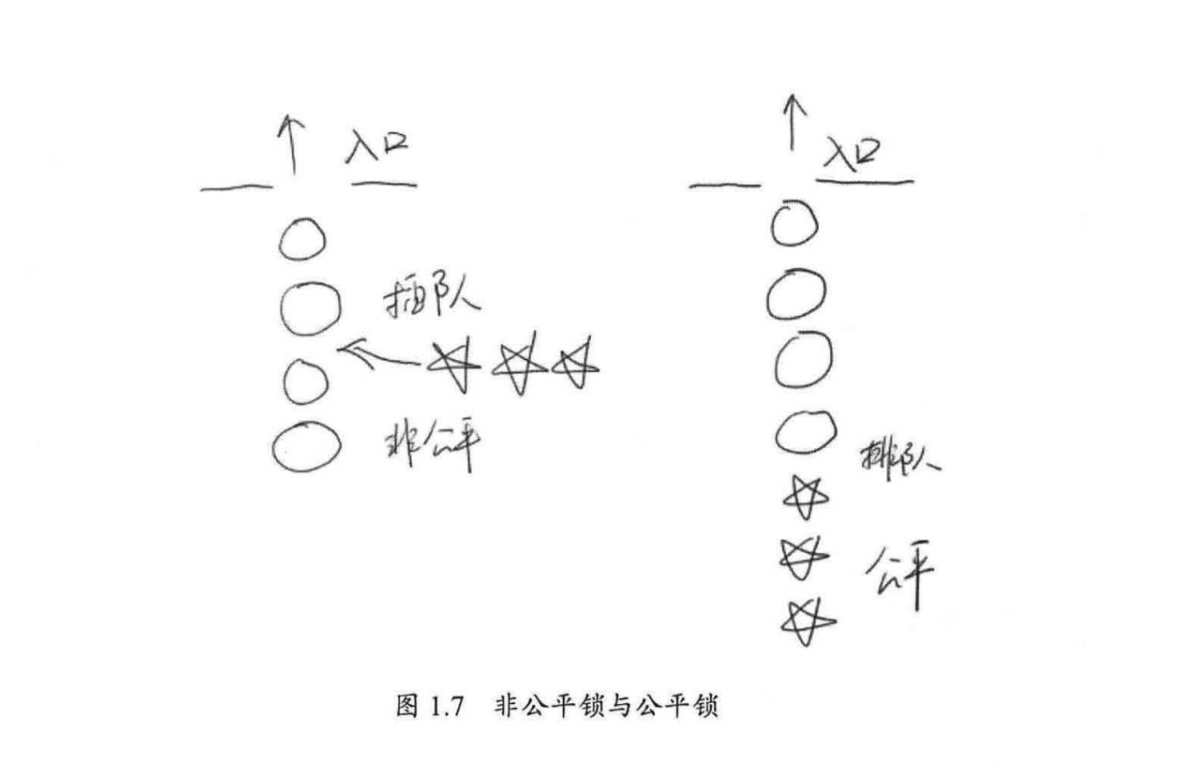 入口
插队
非公平
入口
排队
公平
图 1.7 非公平锁与公平锁